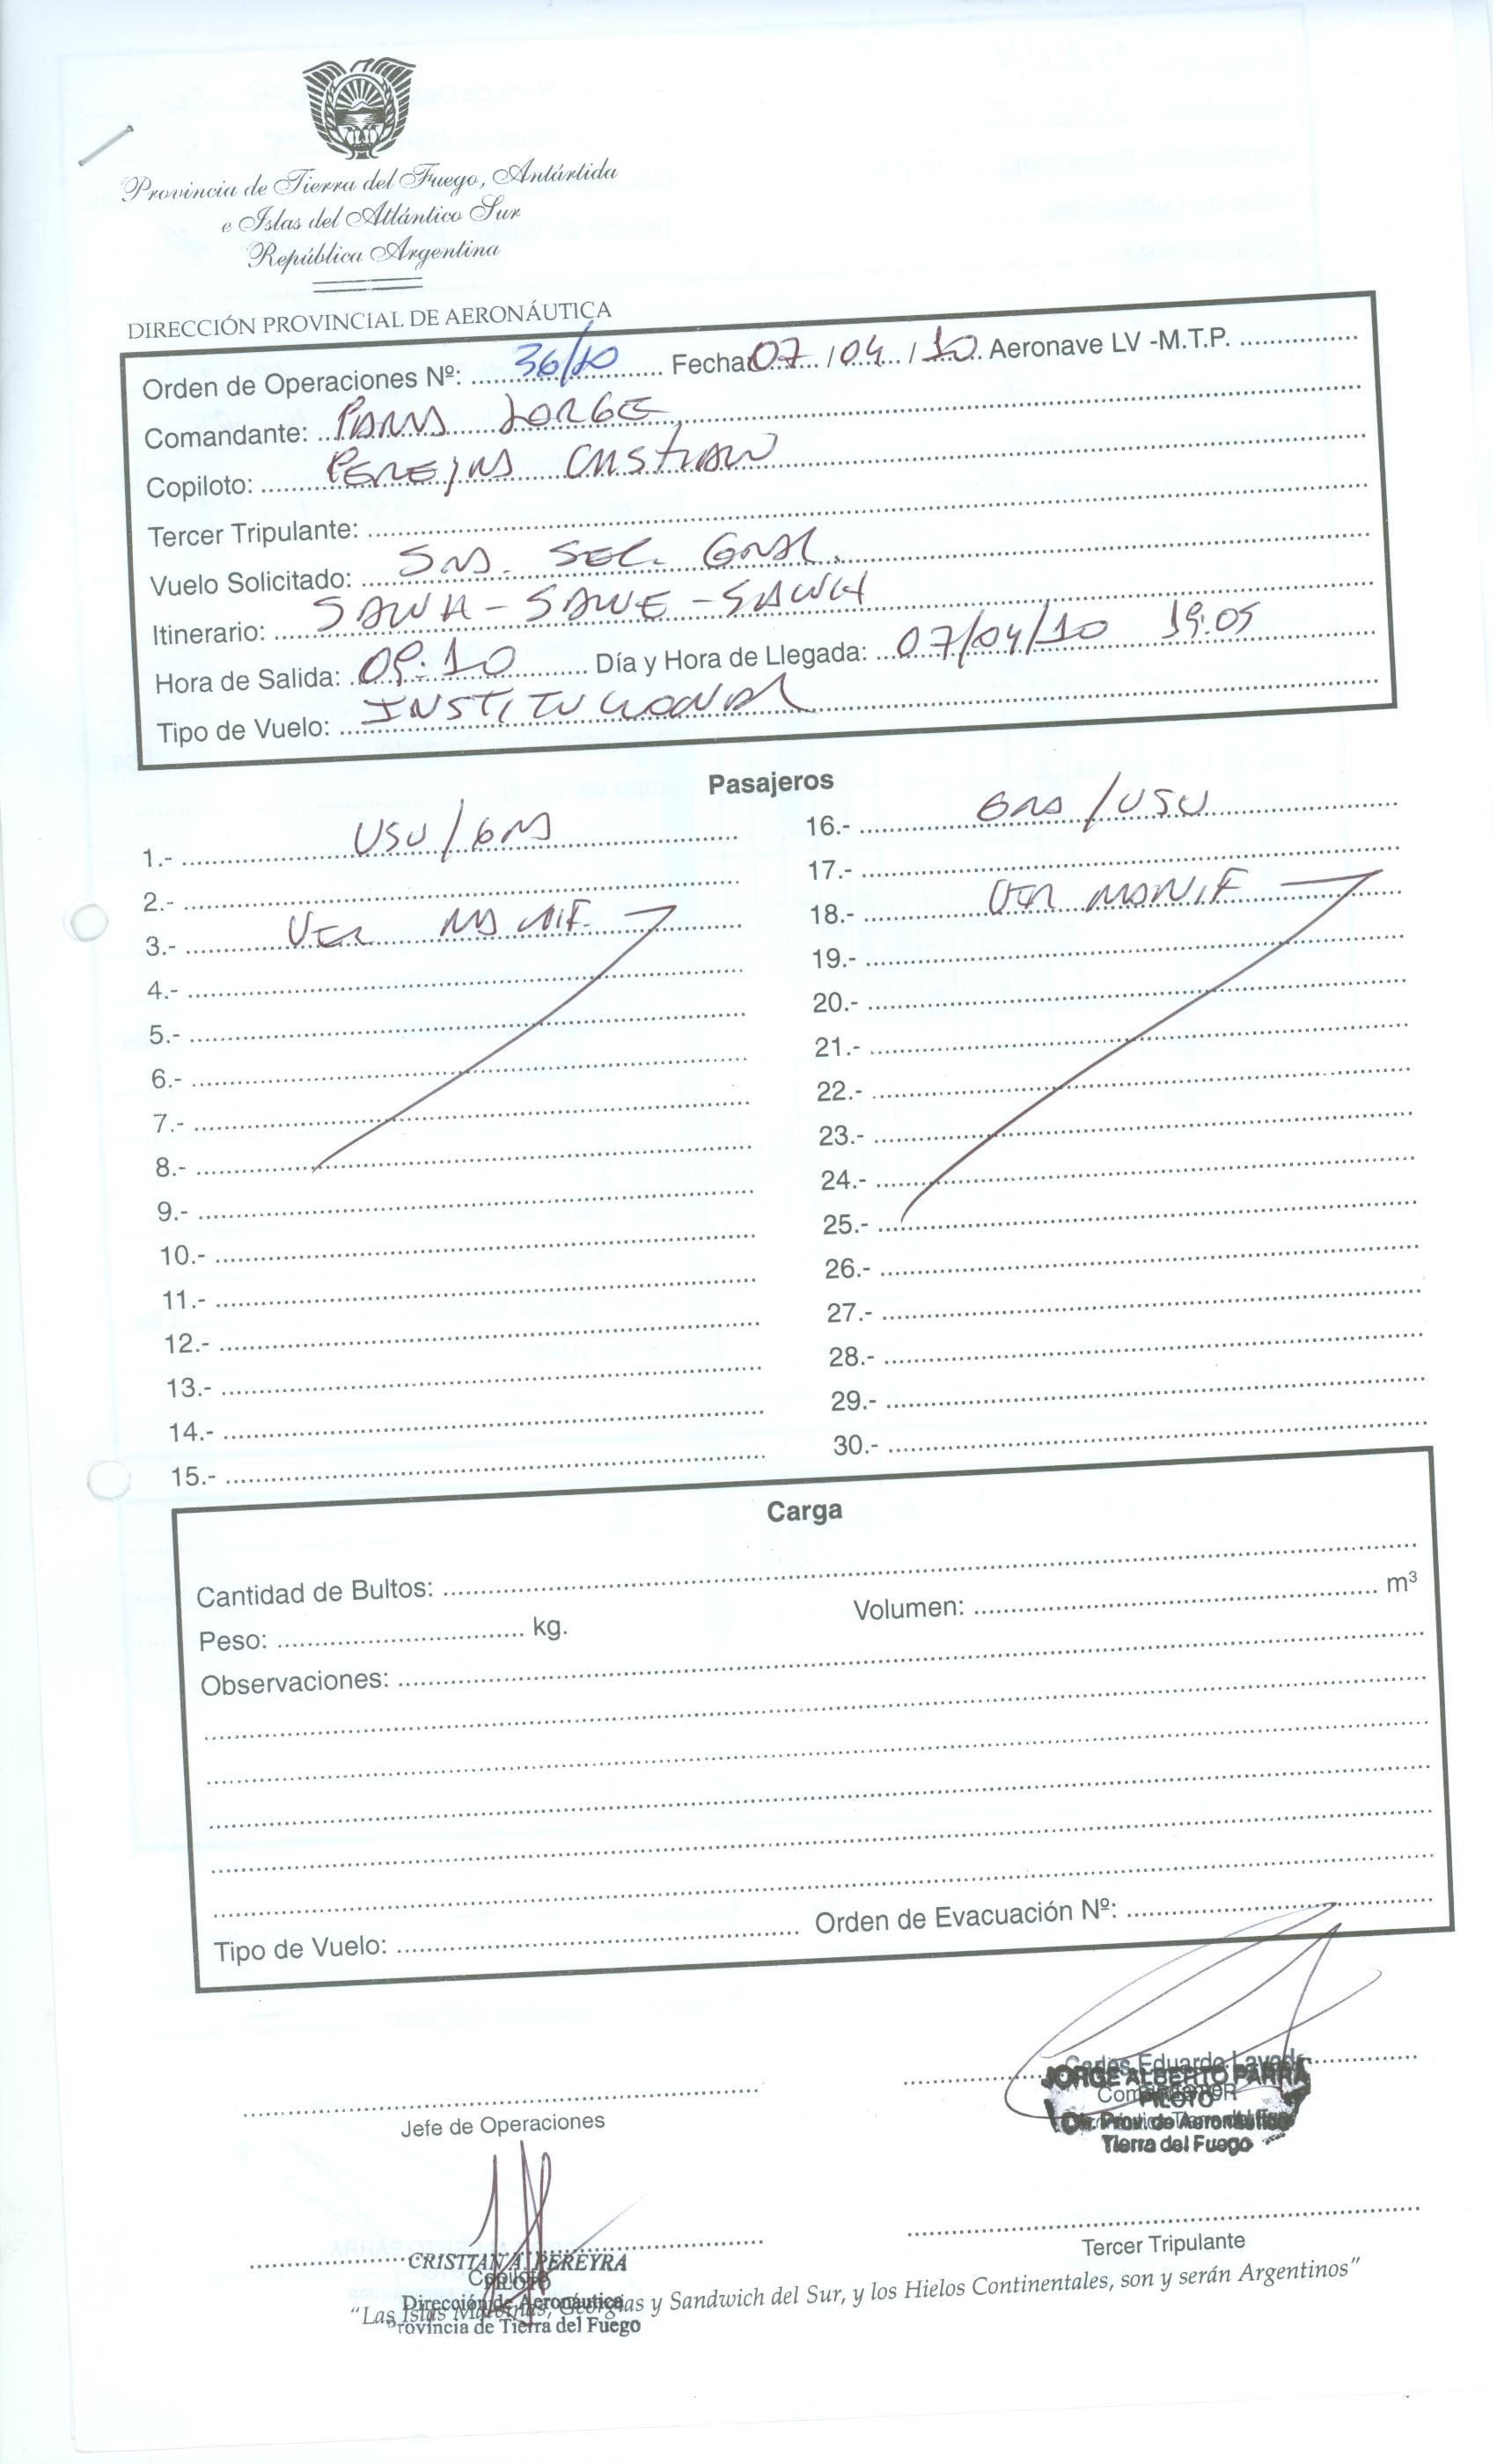 Provincia de Tierra del Fuego, Antártida
e Islas del Atlántico Sur
República Argentina
DIRECCIÓN PROVINCIAL DE AERONÁUTICA
Orden de Operaciones Nº: 36/10 Fecha: 07 / 04 / 10 Aeronave LV -M.T.P.
Comandante: PARRA JORGE
Copiloto: PEREYRA CRISTIAN
Tercer Tripulante:
Vuelo Solicitado: SEC. GRAL.
Itinerario: SAWH - SAWE - SAWH
Hora de Salida: 09:10 Día y Hora de Llegada: 07/04/10 19:05
Tipo de Vuelo: INSTITUCIONAL
Pasajeros
1.- USU/GRA
2.-
3.- VER MANIF.
4.-
5.-
6.-
7.-
8.-
9.-
10.-
11.-
12.-
13.-
14.-
15.-
16.- GRA/USU
17.-
18.- VER MANIF
19.-
20.-
21.-
22.-
23.-
24.-
25.-
26.-
27.-
28.-
29.-
30.-
Carga
Cantidad de Bultos:
Peso: kg. Volumen: m³
Observaciones:
Tipo de Vuelo: Orden de Evacuación Nº:
Jefe de Operaciones
JORGE ALBERTO PARRA
PILOTO
Dir. Prov. de Aeronáutica
Tierra del Fuego
Tercer Tripulante
CRISTIAN A. PEREYRA
Copiloto
PILOTO
Dirección de Aeronáutica
Provincia de Tierra del Fuego
"Las Islas Malvinas, Georgias y Sandwich del Sur, y los Hielos Continentales, son y serán Argentinos"